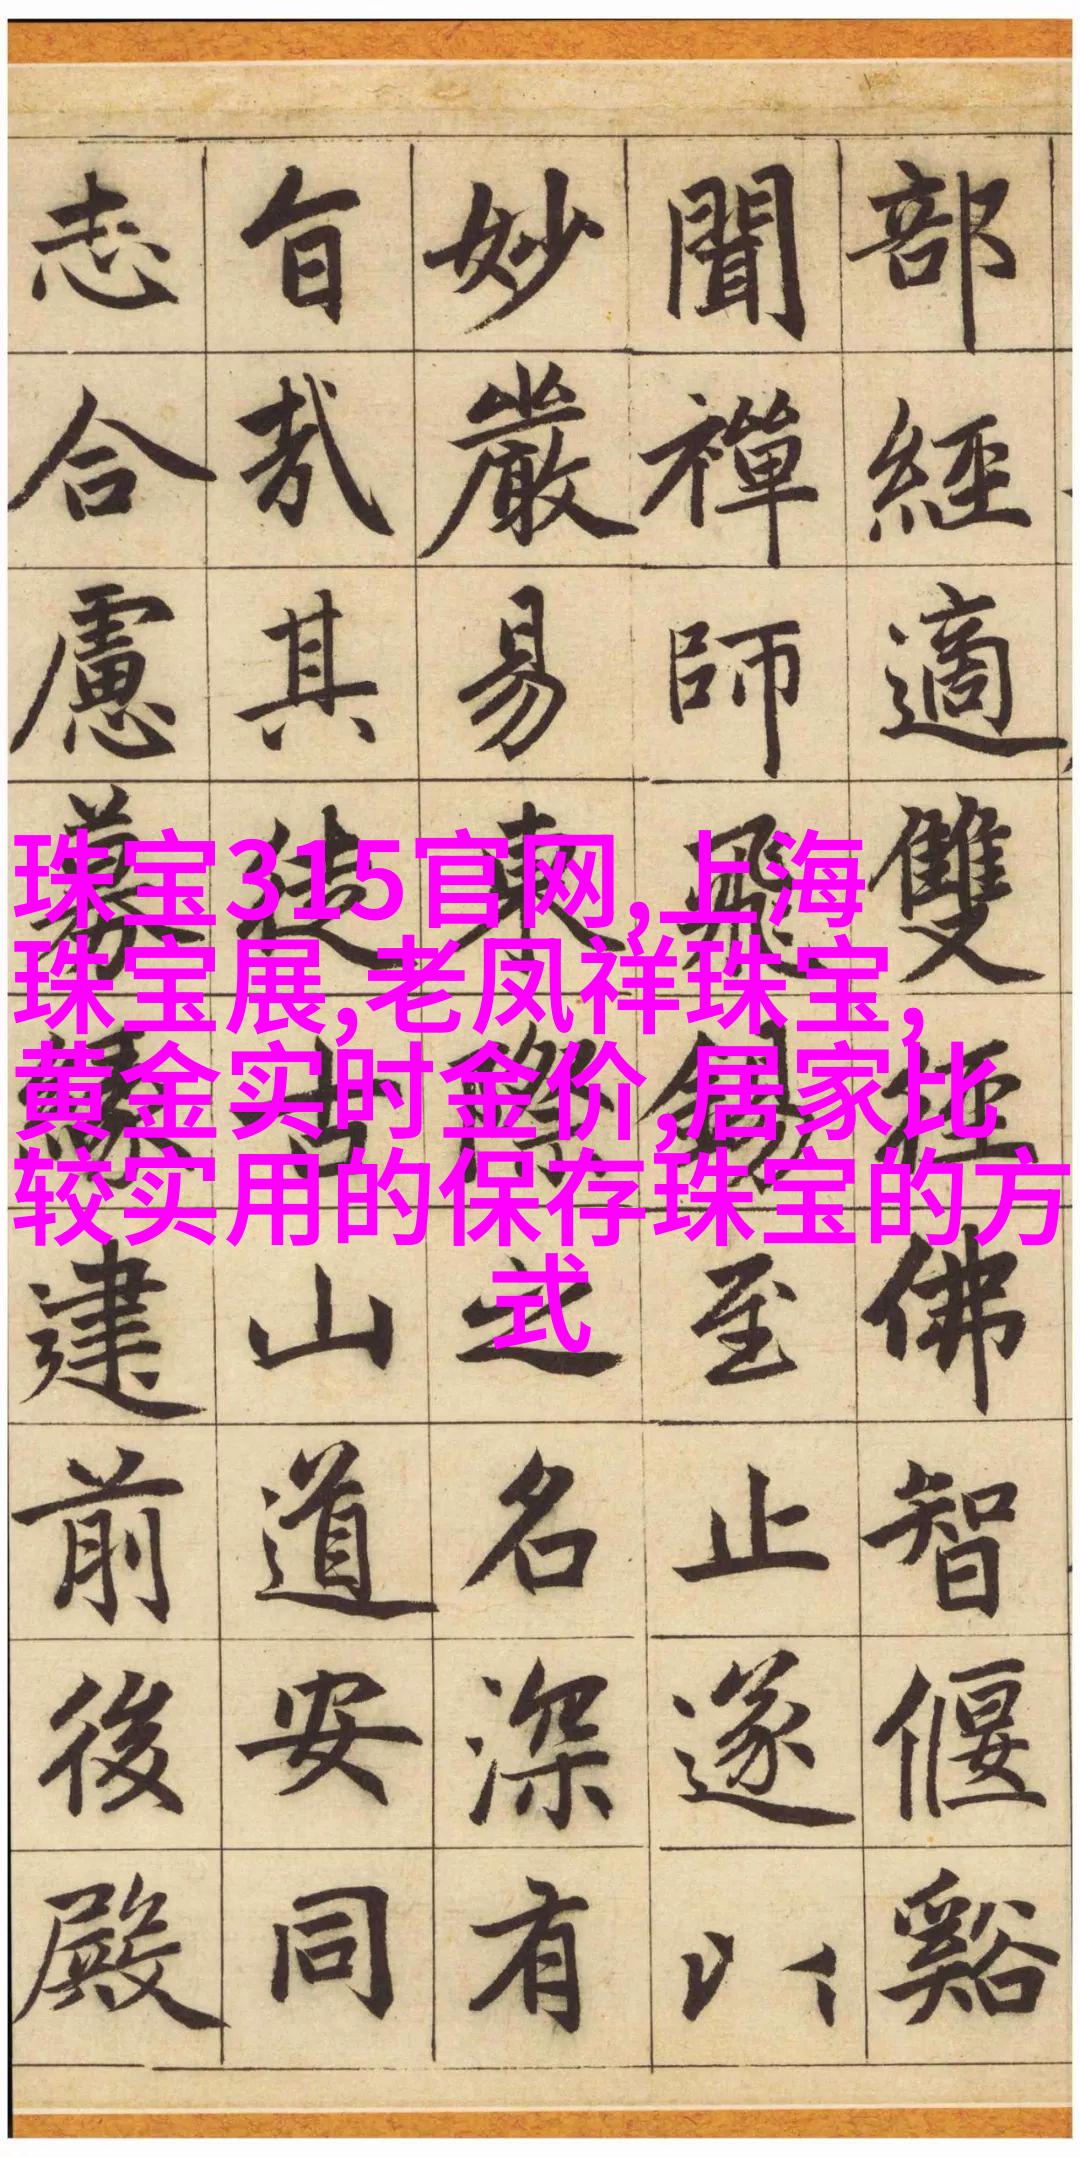 部經適雙徑佛智偃谿
聞禪師飛錫至止遂以
妙嚴易東際之名深有
旨哉其徒古山道安同
志合慮募緣建前後殿
珠宝315官网,上海
珠宝展,老凤祥珠宝,
黄金实时金价,居家比
较实用的保存珠宝的方
式